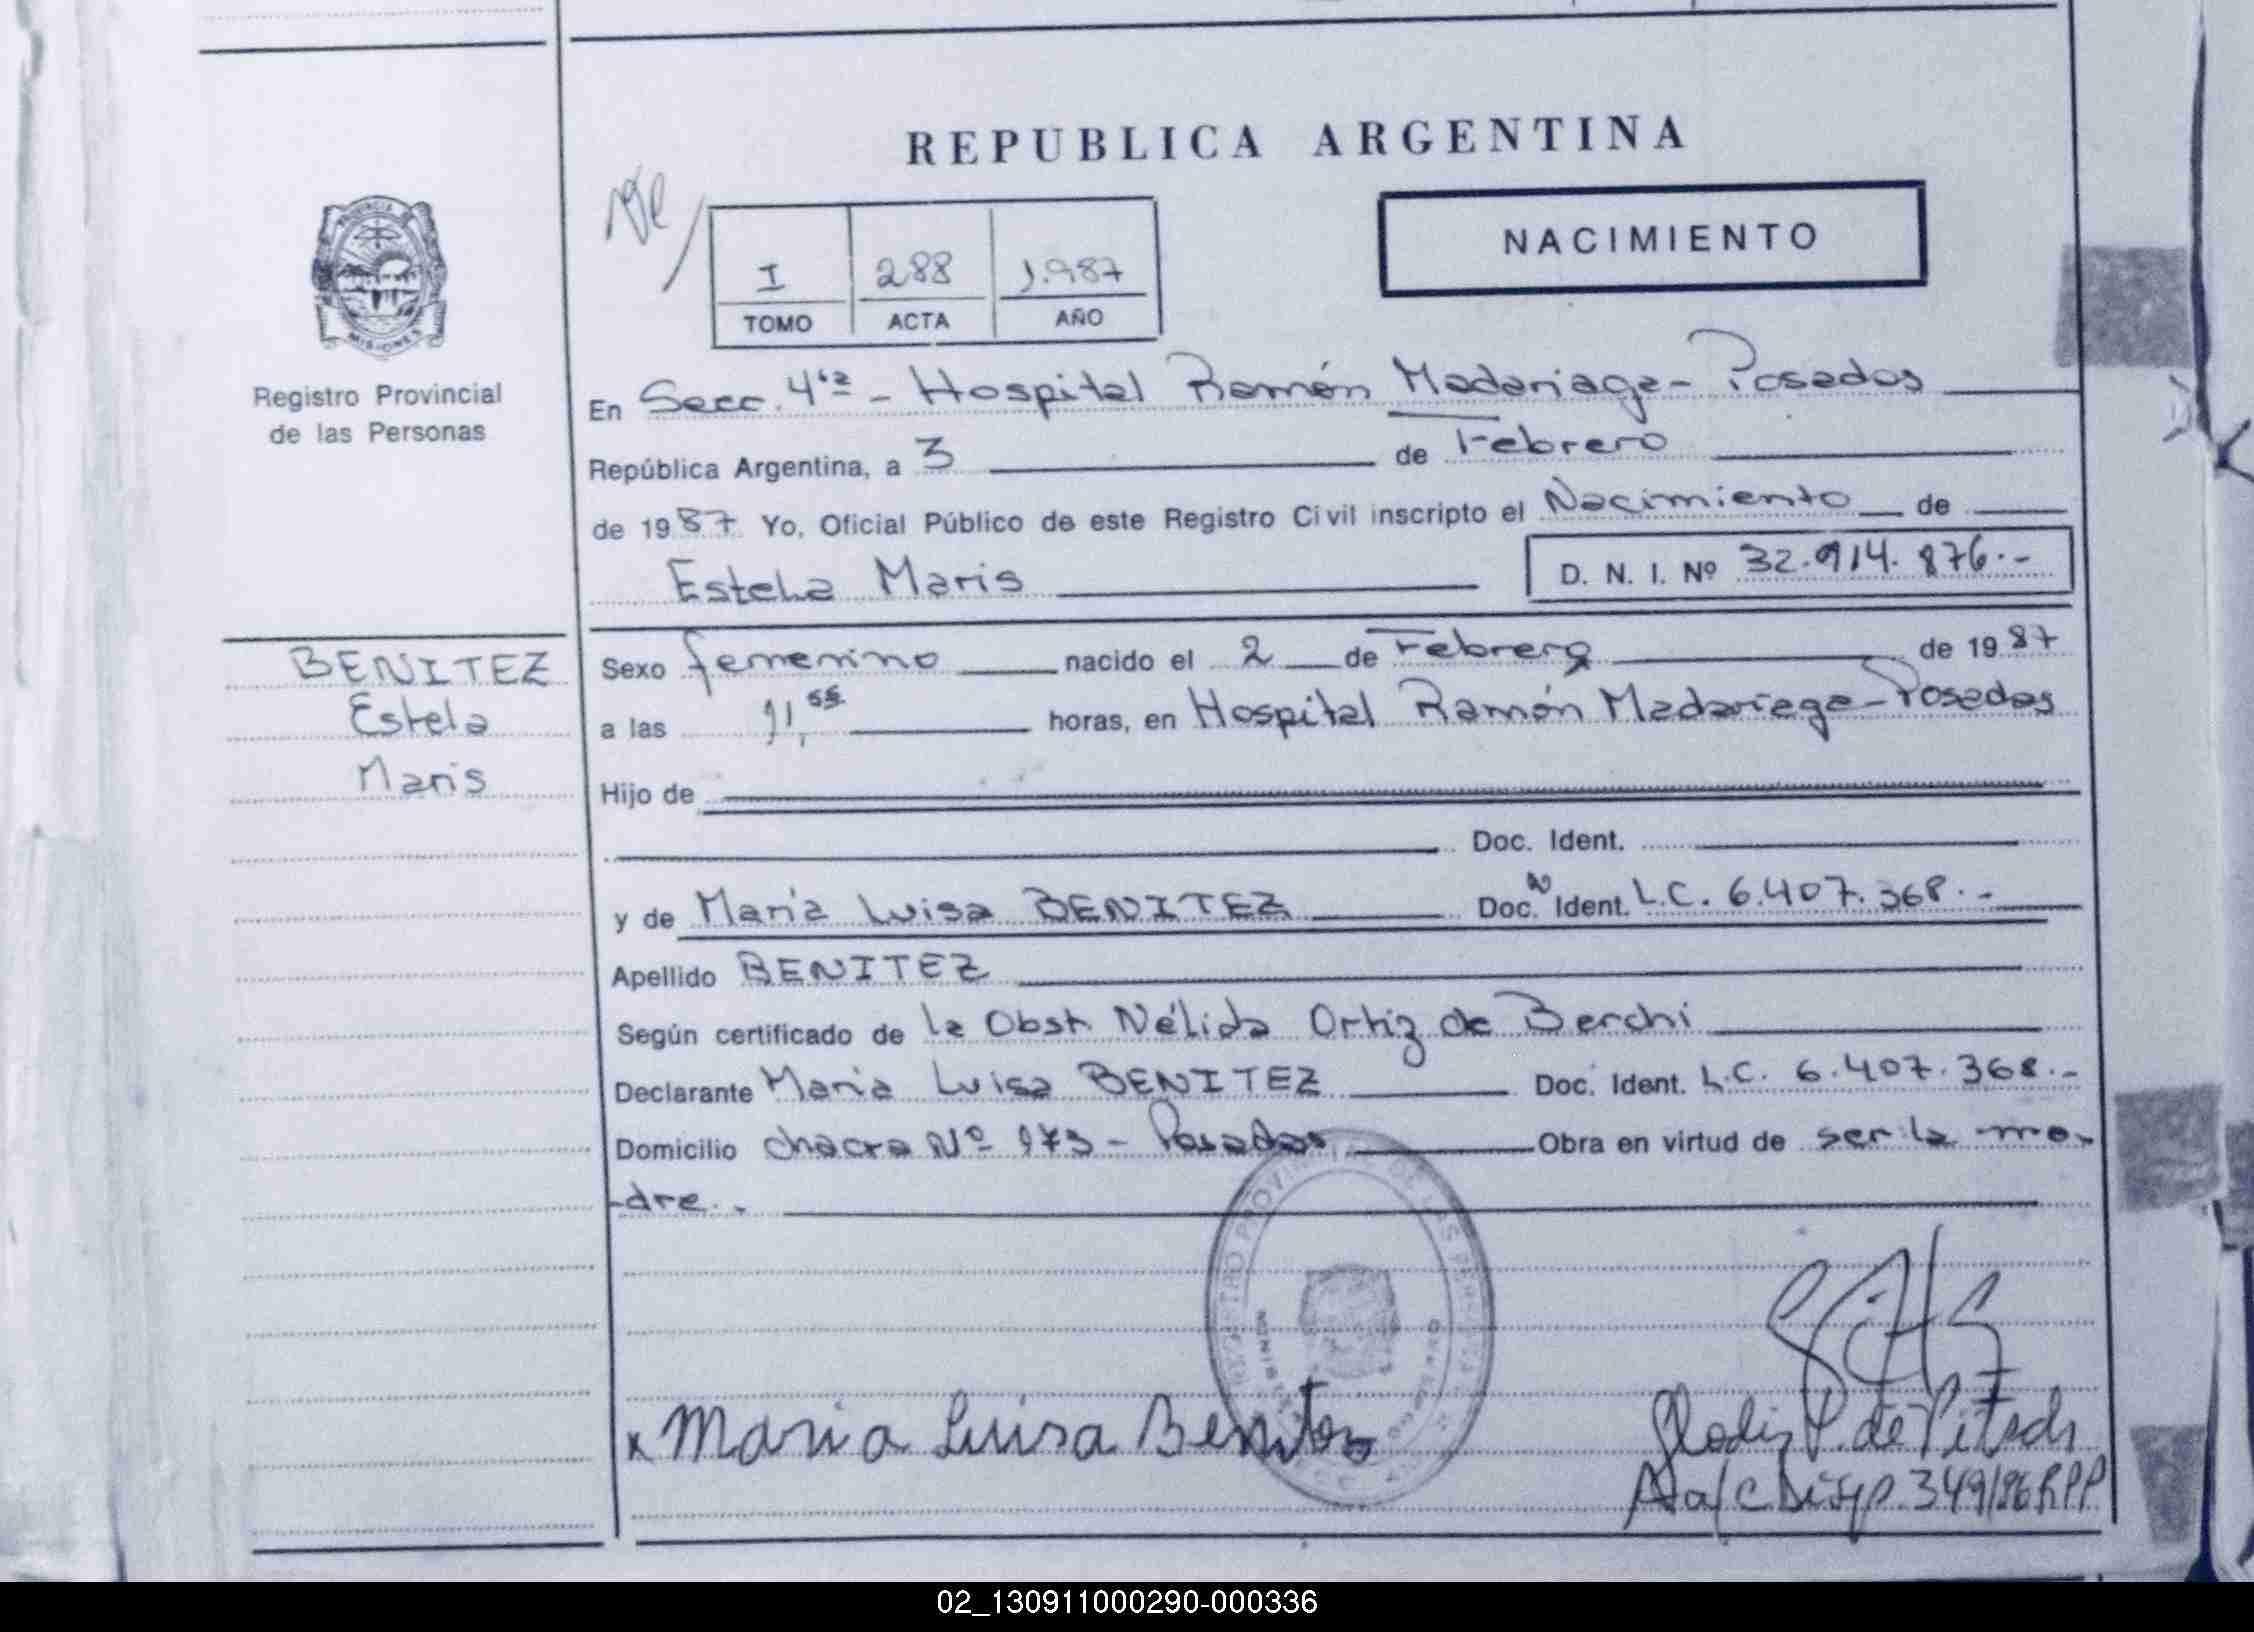 REPUBLICA ARGENTINA
NACIMIENTO
I 288 1.987
TOMO ACTA AÑO
PROVINCIA
MISIONES
Registro Provincial
de las Personas
En Secc. 4ta - Hospital Ramón Madariaga - Posadas
República Argentina, a 3 de Febrero
de 1987 Yo, Oficial Público de este Registro Civil inscripto el Nacimiento de
Estela Maris D. N. I. Nº 32.914.876.-
BENITEZ
Estela
Maris
Sexo femenino nacido el 2 de Febrero de 1987
a las 11,55 horas, en Hospital Ramón Madariaga - Posadas
Hijo de
Doc. Ident.
y de María Luisa BENITEZ Doc. Ident. L.C. 6.407.368.-
Apellido BENITEZ
Según certificado de la Obst. Nélida Ortiz de Berchi
Declarante María Luisa BENITEZ Doc. Ident. L.C. 6.407.368.-
Domicilio chacra Nº 173 - Posadas Obra en virtud de ser la ma-
-dre.-
REGISTRO PROVINCIAL DE LAS PERSONAS
x Maria Luisa Benitez
A a/c Disp. 349/86 RPP
02_130911000290-000336